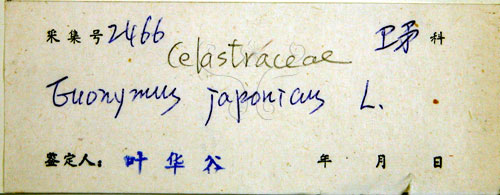 采集号 2466 卫矛科
Celastraceae
Euonymus japonicus L.
鉴定人: 叶华谷 年 月 日